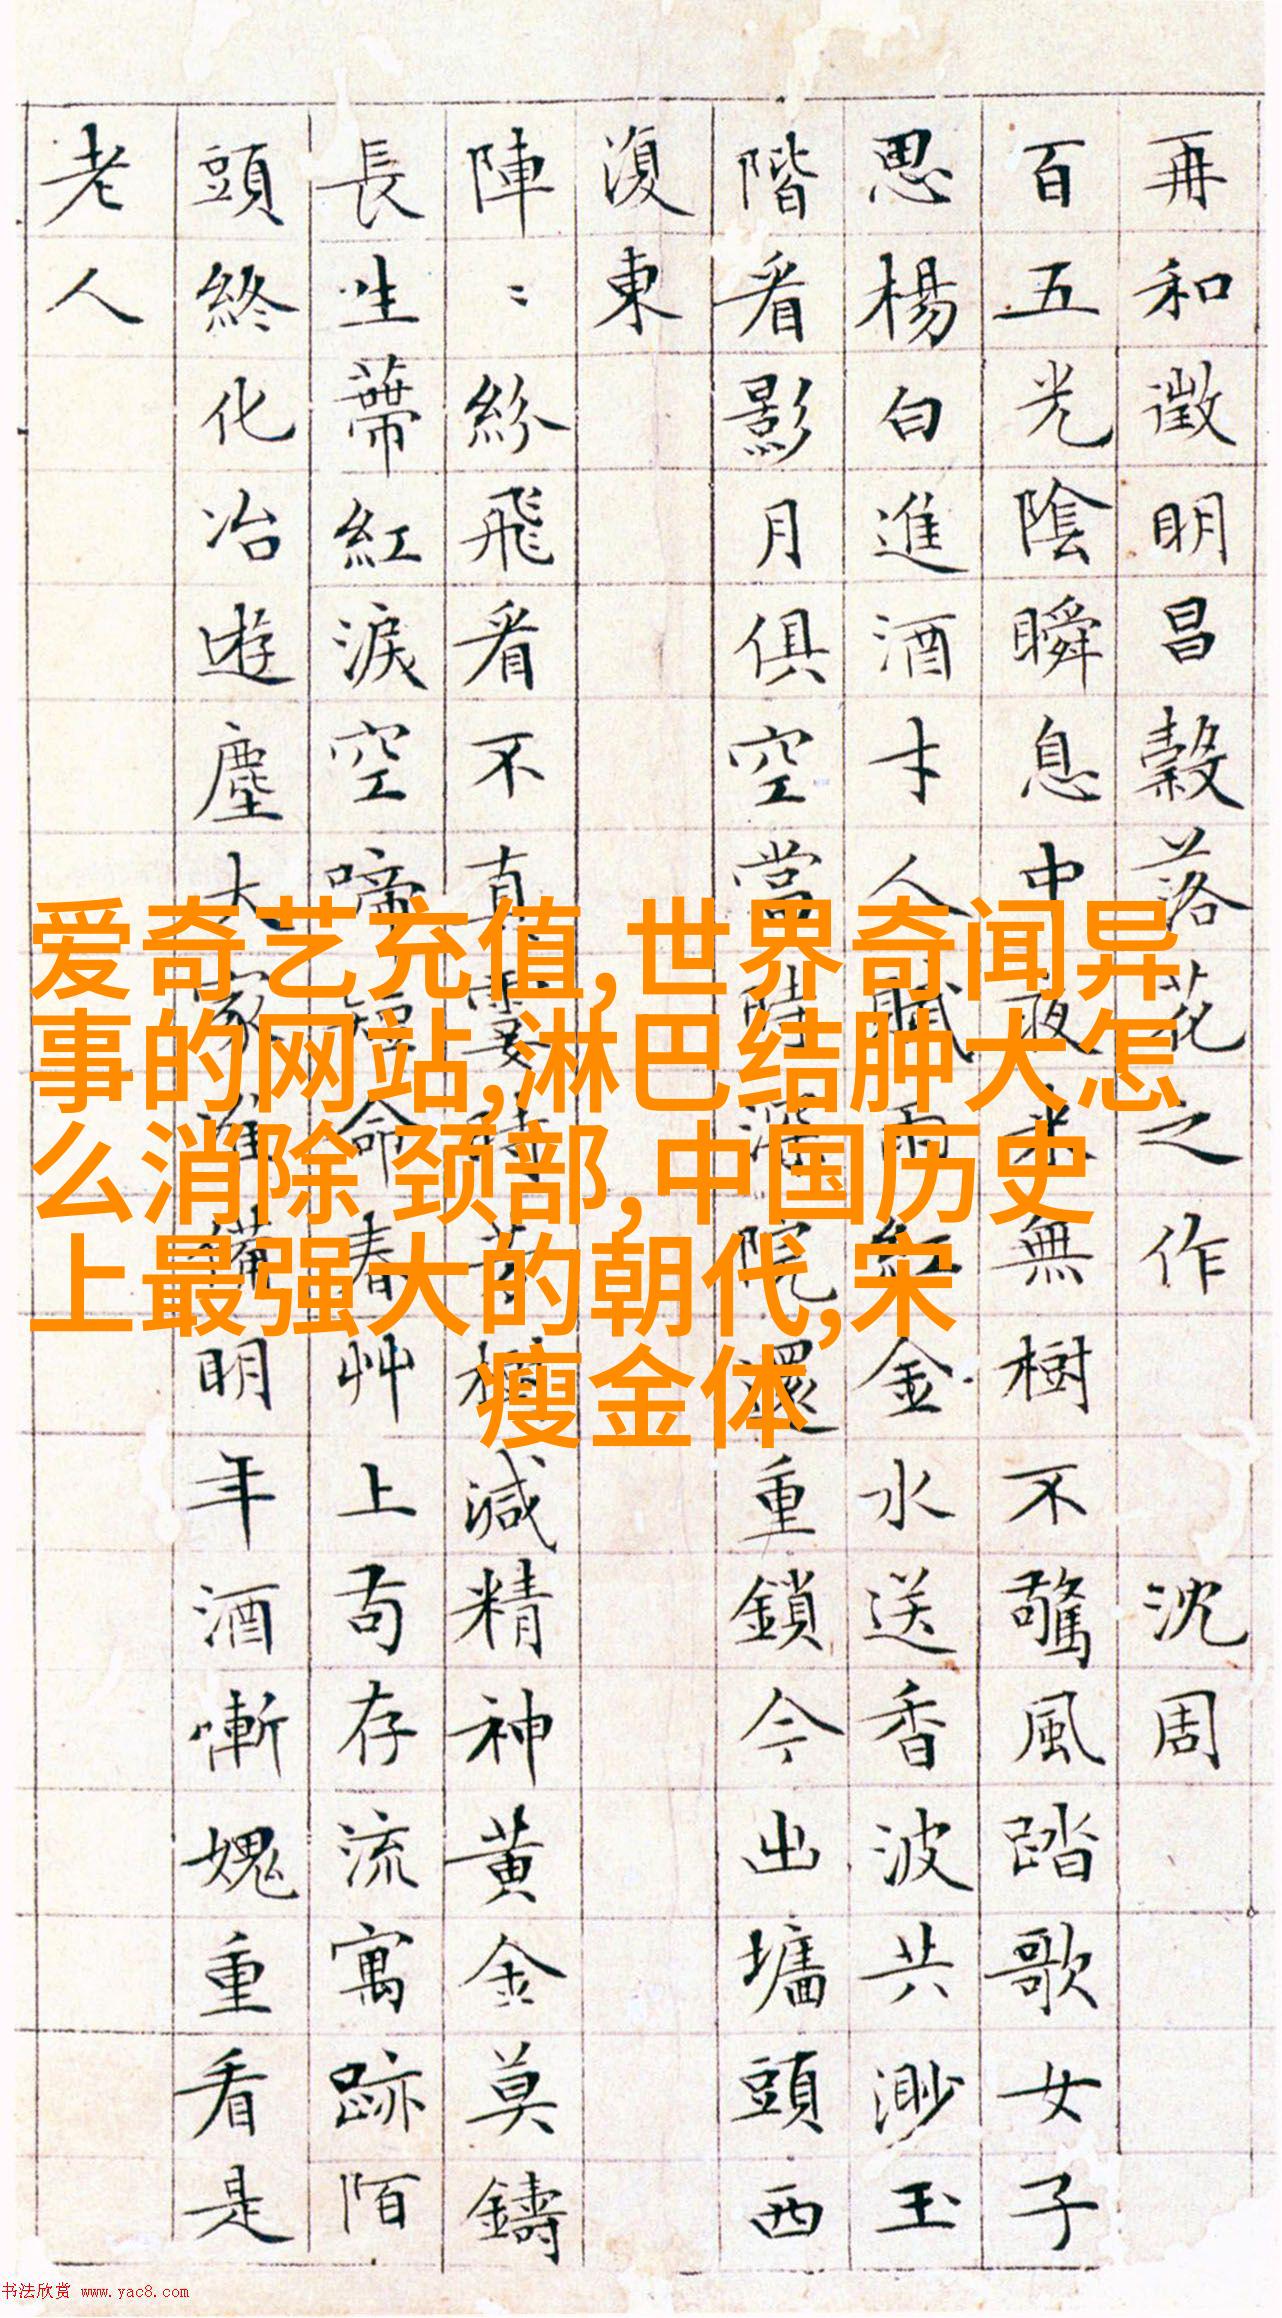 再和徵明昌穀落花之作 沈周
百五光陰瞬息中夜来無樹不驚風踏歌女子
思楊白進酒才人賦雨紅金水送香波共渺玉
階看影月俱空當時深院還重鎖今出墻頭西
復東
陣〻紛飛看不真霎時芳樹減精神黃金莫鑄
長生蔕紅淚空啼短命春艸上苟存流寓跡陌
頭終化冶遊塵大家準備明年酒慚媿重看是
老人
爱奇艺充值,世界奇闻异
事的网站,淋巴结肿大怎
么消除 颈部,中国历史
上最强大的朝代,宋
瘦金体
书法欣赏 www.yac8.com